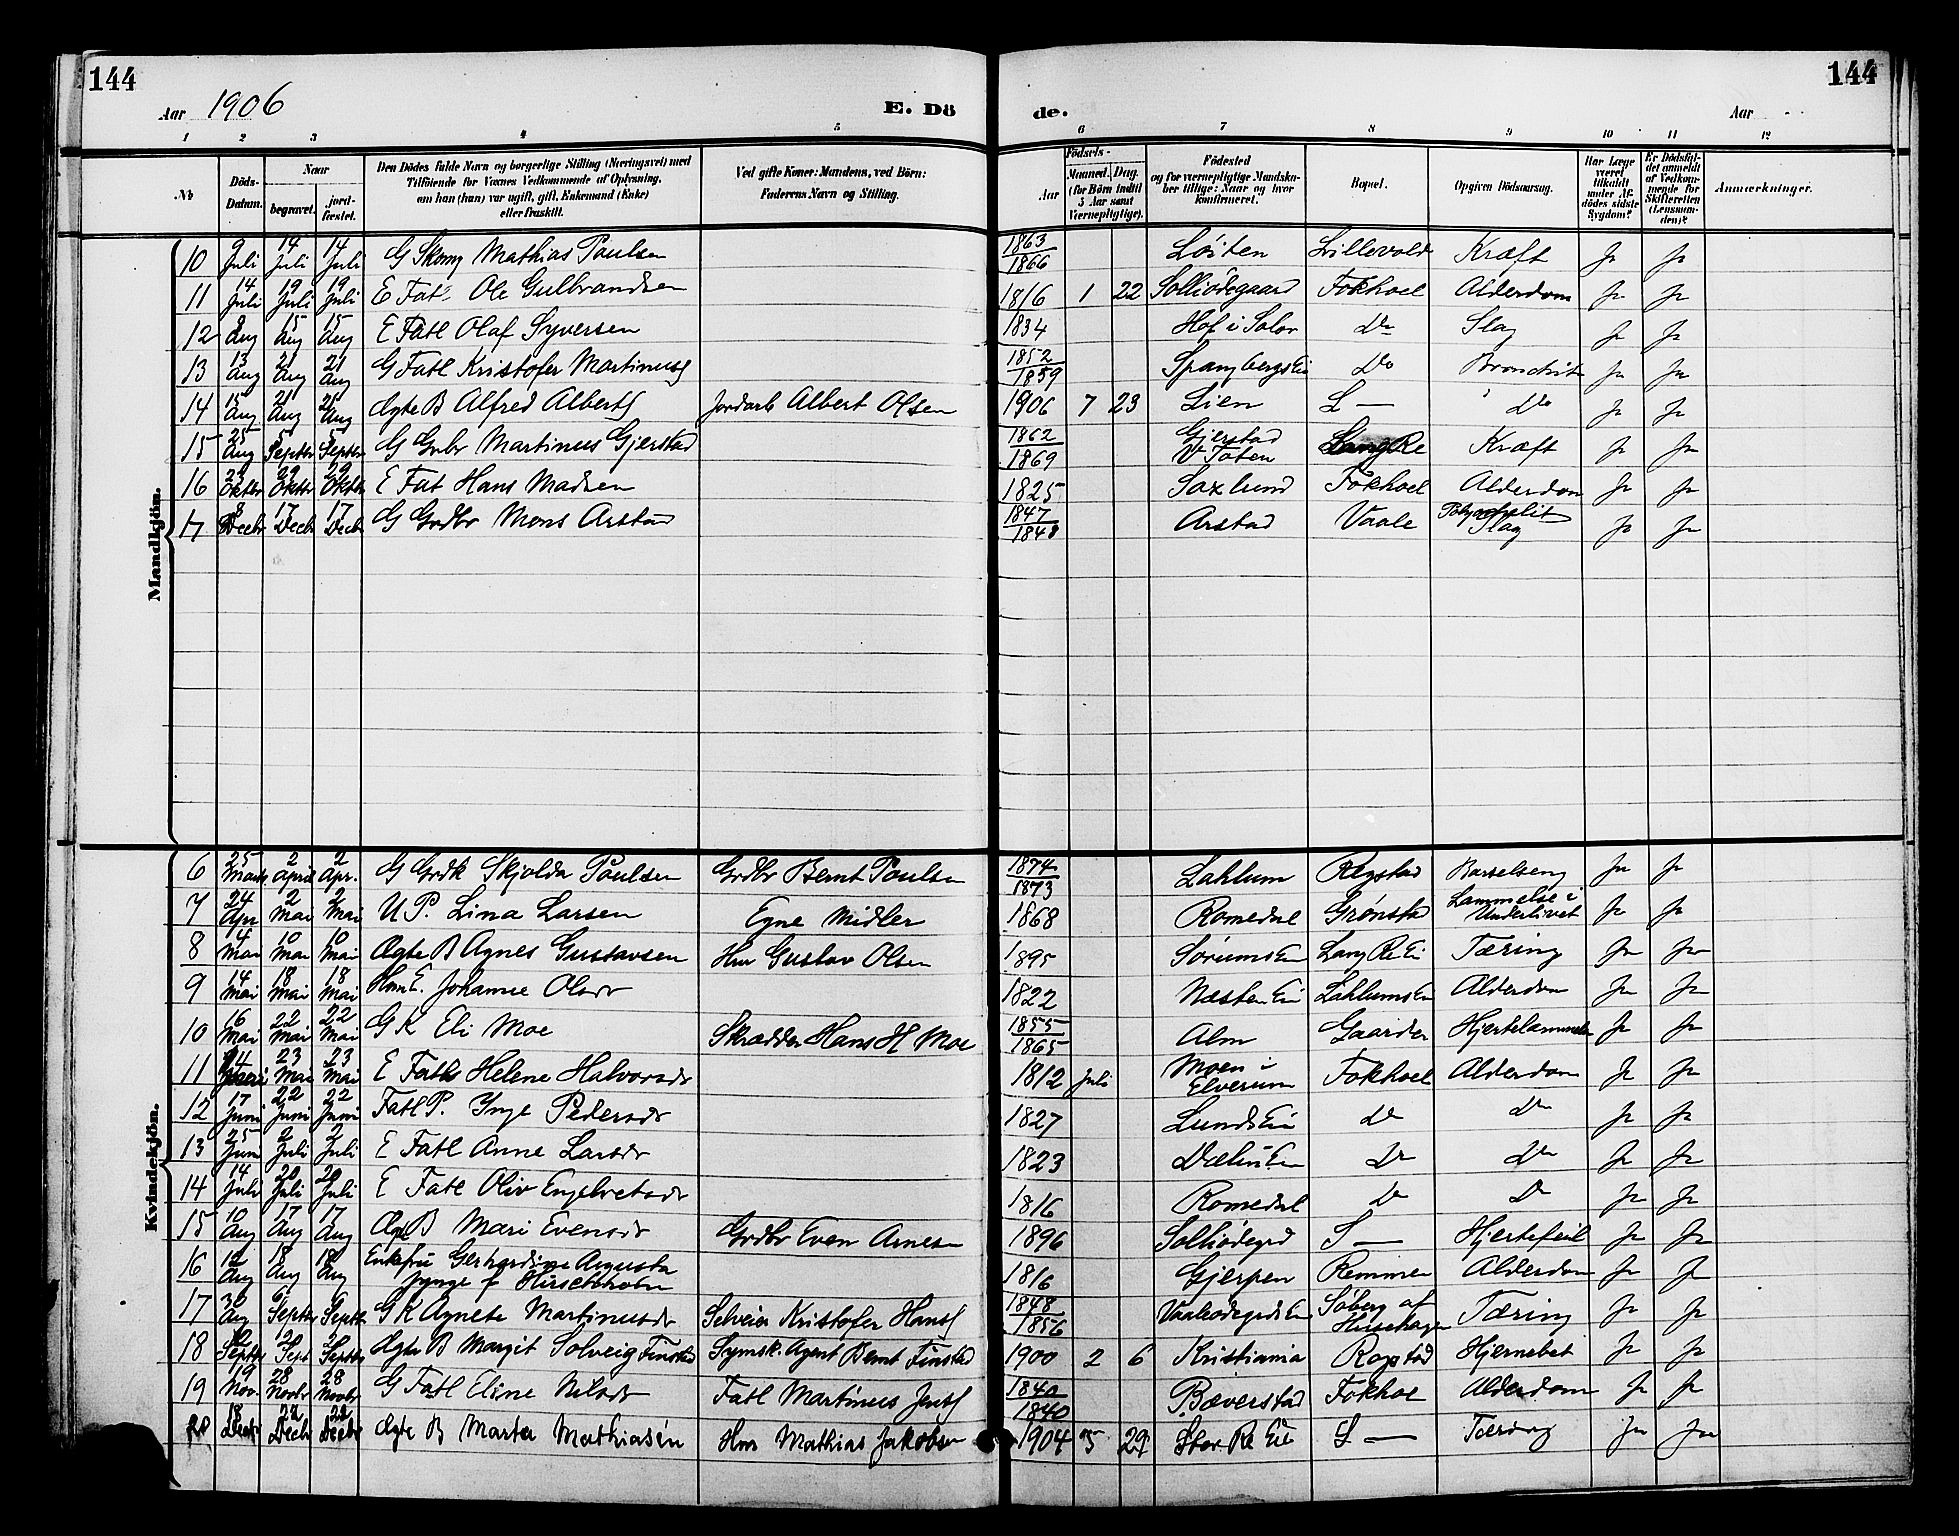 144
144
Aar 1906
E. Dö
de.
Aar
1 2 3 4 5 6 7 8 9 10 11 12
No
Döds-Datum.
Naar
begravet.
jord-fæstet.
Den Dödes fulde Navn og borgerlige Stilling (Næringsvei) med
Tilföiende for Voxnes Vedkommende af Oplysning,
om han (hun) var ugift, gift, Enkemand (Enke)
eller fraskilt.
Ved gifte Koner: Mandens, ved Börn:
Faderens Navn og Stilling.
Födsels-
Aar
Maaned. Dag.
(for Börn indtil
5 Aar samt
Værnepligtige).
Födested
og for værnepligtige Mandska-
ber tillige: Naar og hvor
konfirmeret.
Bopæl.
Opgiven Dödsaarsag.
Har Læge
været
tilkaldt
under Af-
dödes sidste
Sygdom?
Er Dödsfal-
det anmeldt
af Vedkom-
mende for
Skifteretten
(Lensman-
den)?
Anmærkninger.
Mandkjön.
10 9 Juli 14 Juli 14 Juli G Skomg Mathias Paulsen 1863/1866 Löiten Lillevold Kræft Ja Ja
11 14 Juli 19 Juli 19 Juli E Fatl Ole Gulbrandsen 1816 1 22 Solliödegaard Fokhoel Alderdom Ja Ja
12 9 Aug 15 Aug 15 Aug E Fatl Olaf Syversen 1834 Hof i Solør Do Slag Ja Ja
13 13 Aug 21 Aug 21 Aug G Fatl Kristofer Martinus 1852/1859 Spangbergs Ei Do Bronchit Ja Ja
14 15 Aug 21 Aug 21 Aug Ægte B Alfred Alberts Jordarb Albert Olsen 1906 7 23 Lien L — Do Ja Ja
15 25 Aug 5 Septbr 5 Septbr G Grdbr Martinus Gjerstad 1862/1869 Gjerstad V Toten Lang Re Kræft Ja Ja
16 23 Oktbr 29 Oktbr 29 Oktbr E Fat Hans Madsen 1825 Saxlund Fokhoel Alderdom Ja Ja
17 8 Decbr 17 Decb 17 Decb G Grdbr Mons Arstad 1847/1848 Arstad Vaale Slag Ja Ja
Kvindekjön.
6 25 Marts 2 April 2 Apr. G Grdk Skjolda Paulsen Grdbr Bernt Paulsen 1874/1873 Lahlum Rogstad Barselseng Ja Ja
7 24 Apr 2 Mai 2 Mai U P. Lina Larsen Egne Midler 1868 Romedal Grønstad Lammelse i Underlivet Ja Ja
8 4 Mai 10 Mai 10 Mai Ægte B Agnes Gustavsen Hm Gustav Olsen 1895 Sörums Ei Lang Re Ei Tæring Ja Ja
9 14 Mai 18 Mai 18 Mai Hm E. Johanne Olsdr 1822 Næsten Ei Lahlums Ei Alderdom Ja Ja
10 16 Mai 22 Mai 22 Mai G K Eli Moe Skrædder Hans H Moe 1855/1865 Alm Gaarder Hjertelammelse Ja Ja
11 14 Mai 23 Mai 23 Mai E Fatl Helene Halvorsdr 1812 Juli Moen i Elverum Fokhoel Alderdom Ja Ja
12 17 Juni 22 Juni 22 Juni Fatl P. Inge Pedersdr 1827 Lunds Ei Do Do Ja Ja
13 25 Juni 2 Juli 2 Juli E Fatl Anne Larsdr 1823 Dælin Ei Do Do Ja Ja
14 14 Juli 20 Juli 20 Juli E Fatl Oliv Engelbretsdr 1816 Romedal Do Do Ja Ja
15 10 Aug 17 Aug 17 Aug Ægte B Mari Evensdr Grdbr Even Arnesen 1896 Solliödegrd S — Hjertefeil Ja Ja
16 12 Aug 18 Aug 18 Aug Enkefru Gerhardine Augusta Jynge f Hirschholm 1816 Gjerpen Remmen Alderdom Ja Ja
17 30 Aug 6 Septbr 6 Septbr G K Agnete Martinusdr Selveier Kristofer Hans 1848/1856 Vaaleödegrds Ei Söberg af Husehagen Tæring Ja Ja
18 Septbr 12 Sept Septbr Ægte B Margit Solveig Finstad Symsk. Agent Bernt Finstad 1900 2 6 Kristiania Rogstad Hjernebet Ja Ja
19 19 Nov. 28 Novbr 28 Novbr G Fatl Eline Nilsdr Fatl Martinus Jens 1840/1840 Bæverstad Fokhoe Alderdom Ja Ja
20 18 Decbr 22 Decb 22 Decbr Ægte B Marta Mathiasen Hm Mathias Jakobsen 1904 5 29 Stor Re Ei S — Tæring Ja Ja